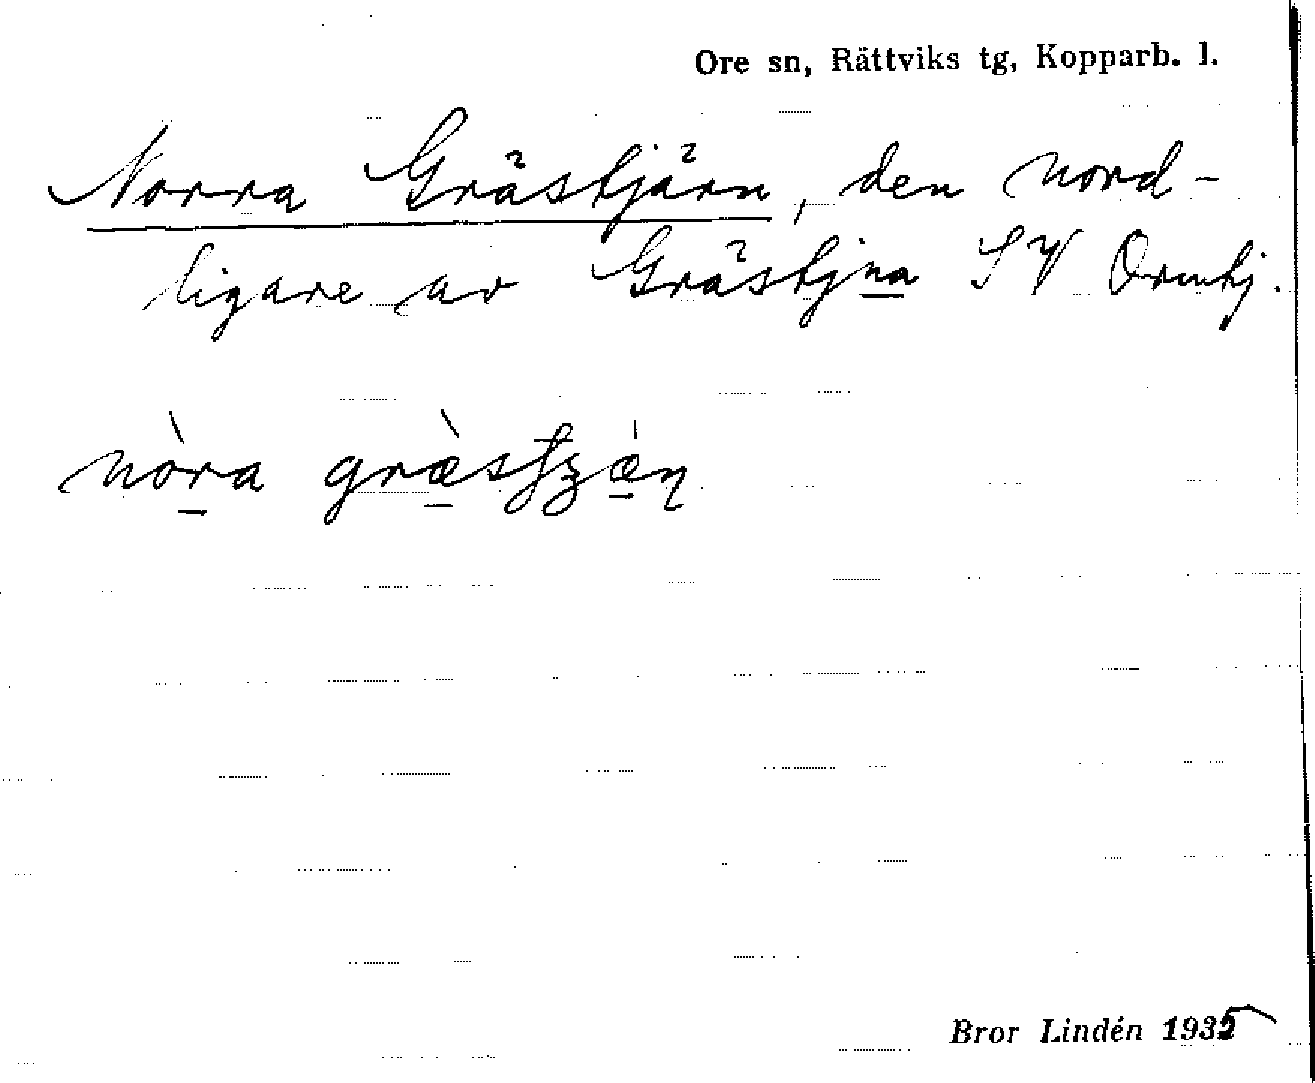 Ore sn, Rättviks tg, Kopparb. l.
Norra Grästjärn, den nord-
ligare av Grästjna SV Ormtj.
nòra græ̀stʃzǽn
Bror Lindén 1935